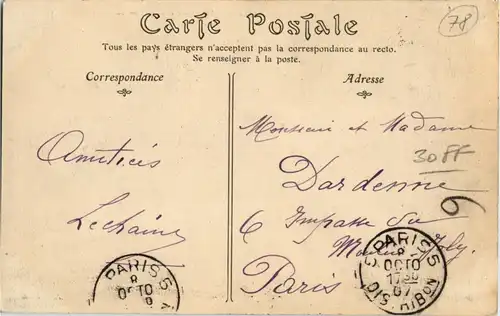 Carte Postale
78
Tous les pays étrangers n'acceptent pas la correspondance au recto.
Se renseigner à la poste.
Correspondance
Adresse
Amitiés
Monsieur et Madame
30FF
Dardenne
6 Impasse du
Paris
6
PARIS 5
8
OCTO
PARIS 5
8
OCTO
17
07